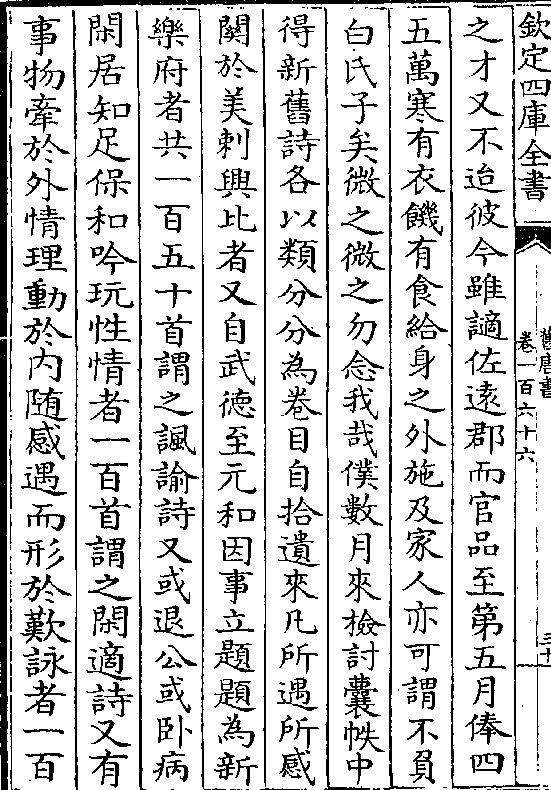 欽定四庫全書
舊唐書
卷一百六十六
三十
之才又不迨彼今雖謫佐遠郡而官品至第五月俸四
五萬寒有衣饑有食給身之外施及家人亦可謂不負
白氏子矣微之微之勿念我哉僕數月來檢討囊帙中
得新舊詩各以類分分為卷目自拾遺來凡所遇所感
關於美刺興比者又自武德至元和因事立題題為新
樂府者共一百五十首謂之諷諭詩又或退公或卧病
閑居知足保和吟玩性情者一百首謂之閑適詩又有
事物牽於外情理動於内随感遇而形於歎詠者一百